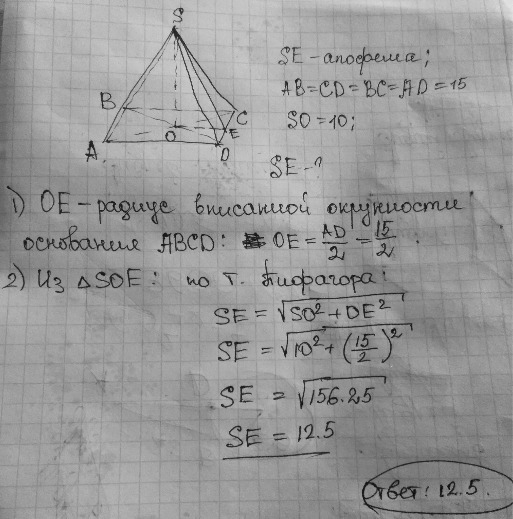 S
B
C
O
E
A
D
SE - апофема;
AB=CD=BC=AD=15
SO=10;
SE-?
1) OE - радиус вписанной окружности
основания ABCD: OE = AD/2 = 15/2 .
2) Из △SOE: по т. Пифагора:
SE = √(SO² + OE²)
SE = √(10² + (15/2)²)
SE = √156.25
SE = 12.5
Ответ: 12.5.